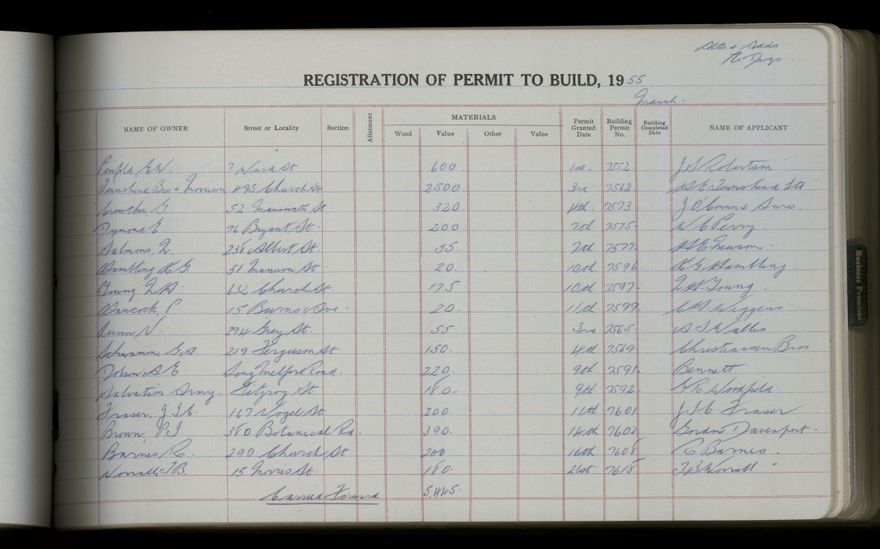 Alts & Adds
to Dwgs
REGISTRATION OF PERMIT TO BUILD, 1955
March.
NAME OF OWNER Street or Locality Section Allotment MATERIALS Wood Value Other Value Permit Granted Date Building Permit No. Building Completed Date NAME OF APPLICANT
Penfold, E.W. 7 Ward St 600 1st. 7552 J S Robertson
Townshend Bros & Morrison 495 Church St 2500 3rd 7562 Townshend Ltd
Crowther, G 52 Manawatu St 320 4th 7573 J O'Connor Sures
Dymond E. 76 Bryant St 200 7th 7575 W C Perry
Salmons, L. 238 Albert St 35 7th 7577 Newson
Hambling K G 51 Manson St. 20. 10th 7596 K G Hambling
Young L A 632 Church St 175 10th 7597 L A Young
Hancock, P 15 Burns Ave 20. 11th 7599 Wiggins
Dunn N. 294 Grey St. 55 3rd 7565 A J Wallis
Schwamm G.A 219 Ferguson St 150. 4th 7569 Christiansen Bros
Dobson A E. Long Melford Road. 220. 9th 7591 Bennett
Salvation Army. Fitzroy St 180. 9th 7592 Woodfield
Fraser, J.J.C. 167 Vogel St 200 11th 7601 J.J.C. Fraser
Brown, P.J 380 Botanical Rd. 390. 14th 7602 Gordon Davenport
Barnes R. 290 Church St 200 16th 7608 R Barnes.
Worrall J.B. 15 Morris St 180. 21st 7618 J B Worrall
Carried Forward 5,445.
Business Premises